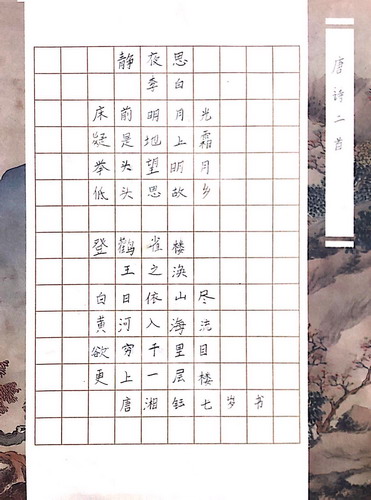 静夜思
李白
床前明月光
疑是地上霜
举头望明月
低头思故乡
登鹳雀楼
王之涣
白日依山尽
黄河入海流
欲穷千里目
更上一层楼
唐湘钰七岁书
唐诗二首